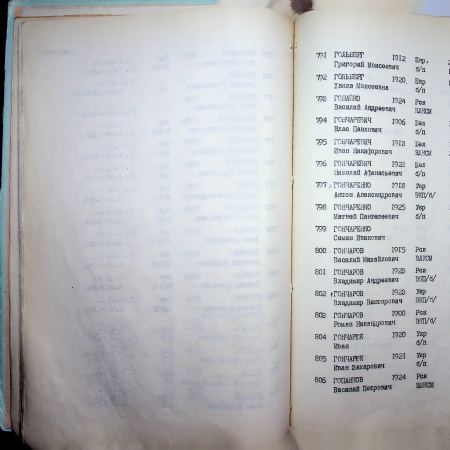 791 ГОЛЬБЕРГ 1912 Евр.
Григорий Моисеевич б/п
792 ГОЛЬБЕРГ 1920 Евр
Ханна Моисеевна б/п
793 1924 Рок
Василий Андреевич ВЛКСМ
794 ГОНЧАРЕВИЧ 1906 Бел
Влас Павлович б/п
795 ГОНЧАРЕВИЧ 1918 Бел
Иван Никифорович ВЛКСМ
796 ГОНЧАРЕВИЧ 1922 Бел
Николай Афанасьевич б/п
797 ГОНЧАРЕНКО 1918 Укр
Антон Александрович ВКП/б/
798 ГОНЧАРЕНКО 1925 Укр
Матвей Пантелеевич б/п
799 ГОНЧАРЕНКО
Семен Иванович
800 ГОНЧАРОВ 1915 Рок
Василий Михайлович ВЛКСМ
801 ГОНЧАРОВ 1923 Рок
Владимир Андреевич ВКП/б/
802 ГОНЧАРОВ 1923 Укр
Владимир Викторович ВКП/б/
803 ГОНЧАРОВ 1900 Рок
Роман Никандрович ВКП/б/
804 ГОНЧАРУК 1920 Укр
Иван б/п
805 ГОНЧАРУК 1921 Укр
Иван Захарович б/п
806 ГОПАНКОВ 1924 Рок
Василий Петрович ВЛКСМ